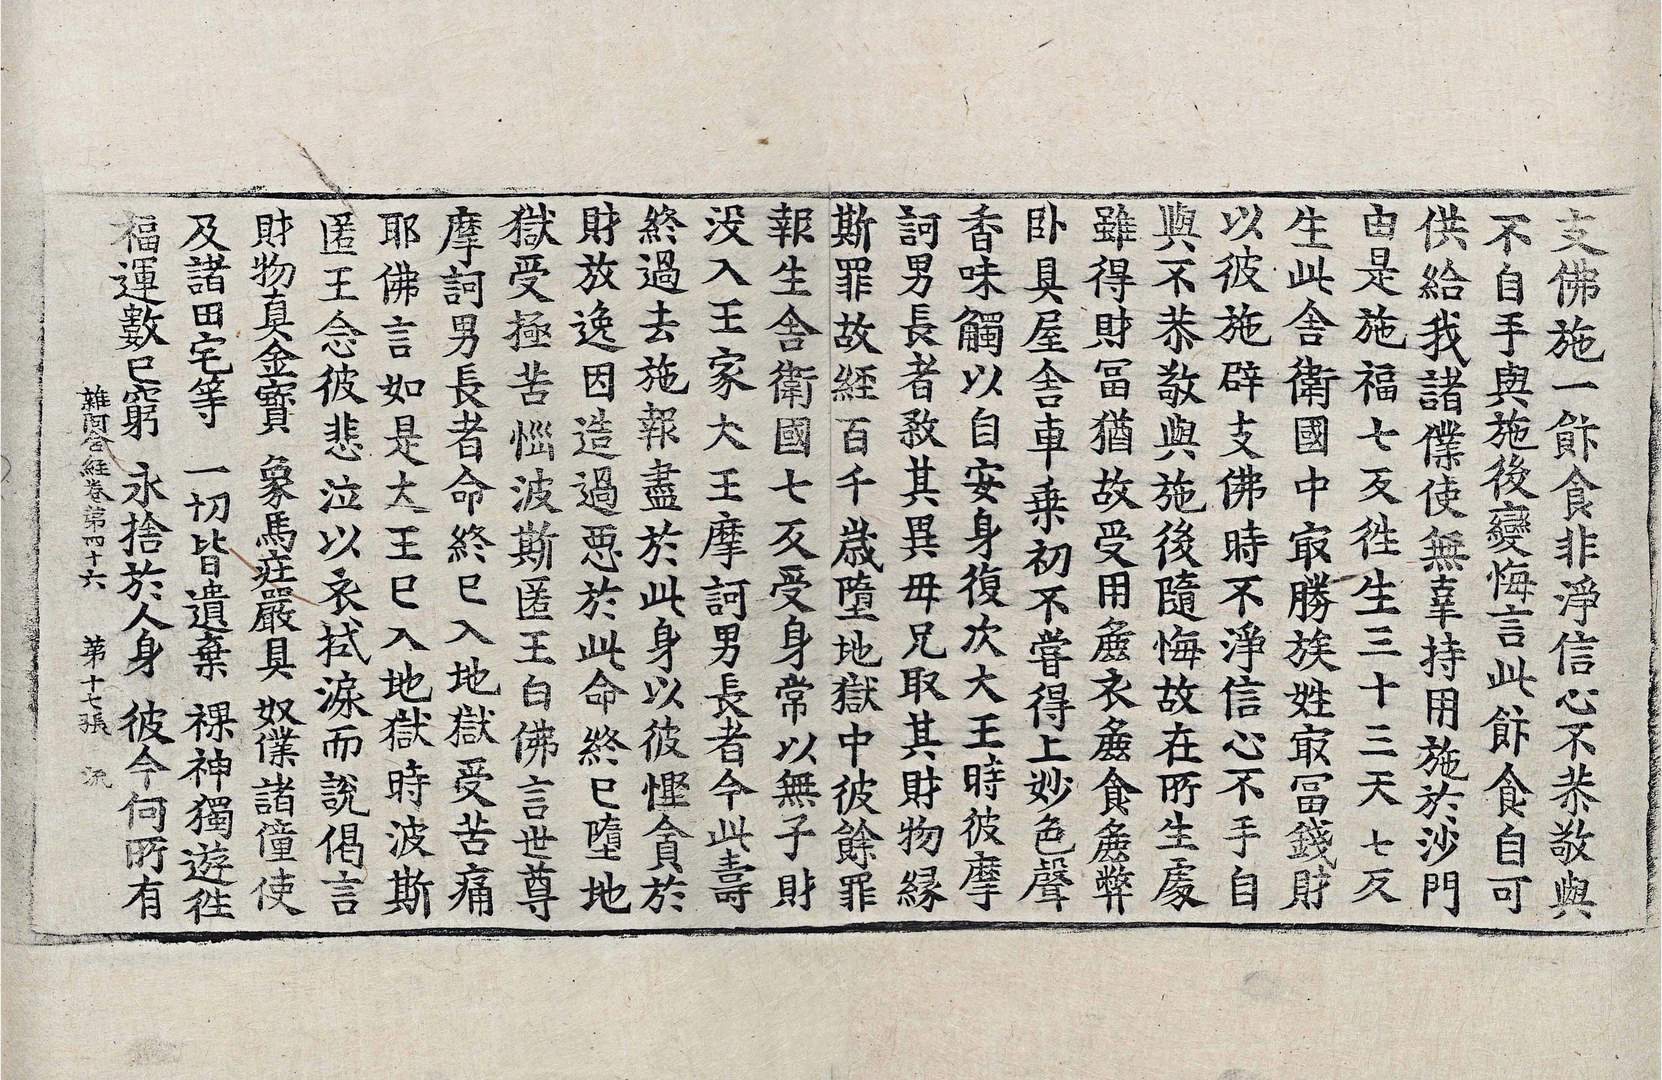 支佛施一飰食非淨信心不恭敬與
不自手與施後變悔言此飰食自可
供給我諸僕使無辜持用施於沙門
由是施福七反徃生三十三天七反
生此舍衛國中㝡勝族姓㝡冨錢財
以彼施辟支佛時不淨信心不手自
與不恭敬與施後隨悔故在所生處
雖得財冨猶故受用麁衣麁食麁弊
卧具屋舍車乗初不嘗得上妙色聲
香味觸以自安身復次大王時彼摩
訶男長者敎其異母兄取其財物緣
斯罪故經百千歲墮地獄中彼餘罪
報生舍衛國七反受身常以無子財
没入王家大王摩訶男長者今此壽
終過去施報盡於此身以彼慳貪於
財放逸因造過惡於此命終已墮地
獄受極苦惱波斯匿王白佛言世尊
摩訶男長者命終已入地獄受苦痛
耶佛言如是大王已入地獄時波斯
匿王念彼悲泣以衣拭淚而說偈言
財物真金寶 象馬莊嚴具 奴僕諸僮使
及諸田宅等 一切皆遺棄 裸神獨遊徃
福運數已窮 永捨於人身 彼今何所有
雜阿含経卷第四十六 第十七張 流